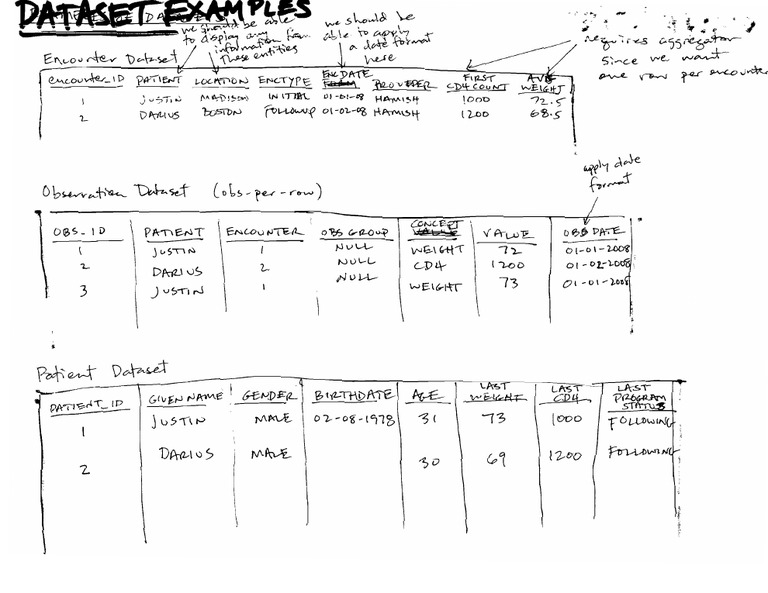 DATASET EXAMPLES
we should be able
to display any
information from
these entities
we should be
able to apply
a date format
here
requires aggregator
since we want
one row per encounter
Encounter Dataset
encounter_ID PATIENT LOCATION ENCTYPE ENC DATE PROVIDER FIRST CD4 COUNT AVG WEIGHT
1 JUSTIN MADISON INITIAL 01-01-08 HAMISH 1000 72.5
2 DARIUS BOSTON FOLLOWUP 01-02-08 HAMISH 1200 68.5
apply date
format
Observation Dataset (obs-per-row)
OBS_ID PATIENT ENCOUNTER OBS GROUP CONCEPT VALUE OBS DATE
1 JUSTIN 1 NULL WEIGHT 72 01-01-2008
2 DARIUS 2 NULL CD4 1200 01-02-2008
3 JUSTIN 1 NULL WEIGHT 73 01-01-2008
Patient Dataset
PATIENT_ID GIVEN NAME GENDER BIRTHDATE AGE LAST WEIGHT LAST CD4 LAST PROGRAM STATUS
1 JUSTIN MALE 02-08-1978 31 73 1000 FOLLOWING
2 DARIUS MALE 30 69 1200 FOLLOWING